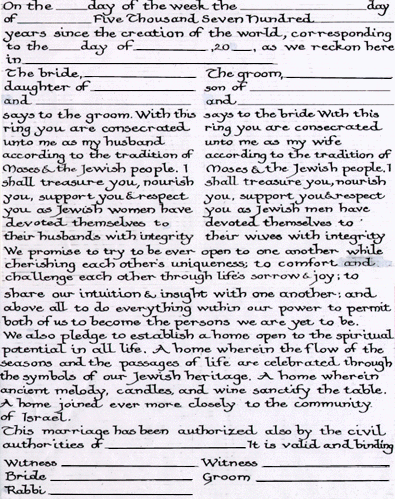 On the ____day of the week the ____________day
of________ Five Thousand Seven Hundred ________
years since the creation of the world, corresponding
to the____day of ______,20__, as we reckon here
in____________________
The bride,____________ The groom,____________
daughter of____________ son of ____________
and ____________ and____________
says to the groom. With this says to the bride With this
ring you are consecrated ring you are consecrated
unto me as my husband unto me as my wife
according to the tradition of according to the tradition of
Moses & the Jewish people. I Moses & the Jewish people, I
shall treasure you, nourish shall treasure you, nourish
you, support you & respect you, support you & respect
you as Jewish women have you as Jewish men have
devoted themselves to devoted themselves to
their husbands with integrity their wives with integrity
We promise to try to be ever open to one another while
cherishing each other's uniqueness; to comfort and
challenge each other through life's sorrow & joy; to
share our intuition & insight with one another: and
above all to do everything within our power to permit
both of us to become the persons we are yet to be.
We also pledge to establish a home open to the spiritual
potential in all life. A home wherein the flow of the
seasons and the passages of life are celebrated through
the symbols of our Jewish heritage. A home wherein
ancient melody, candles, and wine sanctify the table.
A home joined ever more closely to the community
of Israel.
This marriage has been authorized also by the civil
authorities of ____________ It is valid and binding
Witness ____________ Witness ____________
Bride ____________ Groom ____________
Rabbi ____________